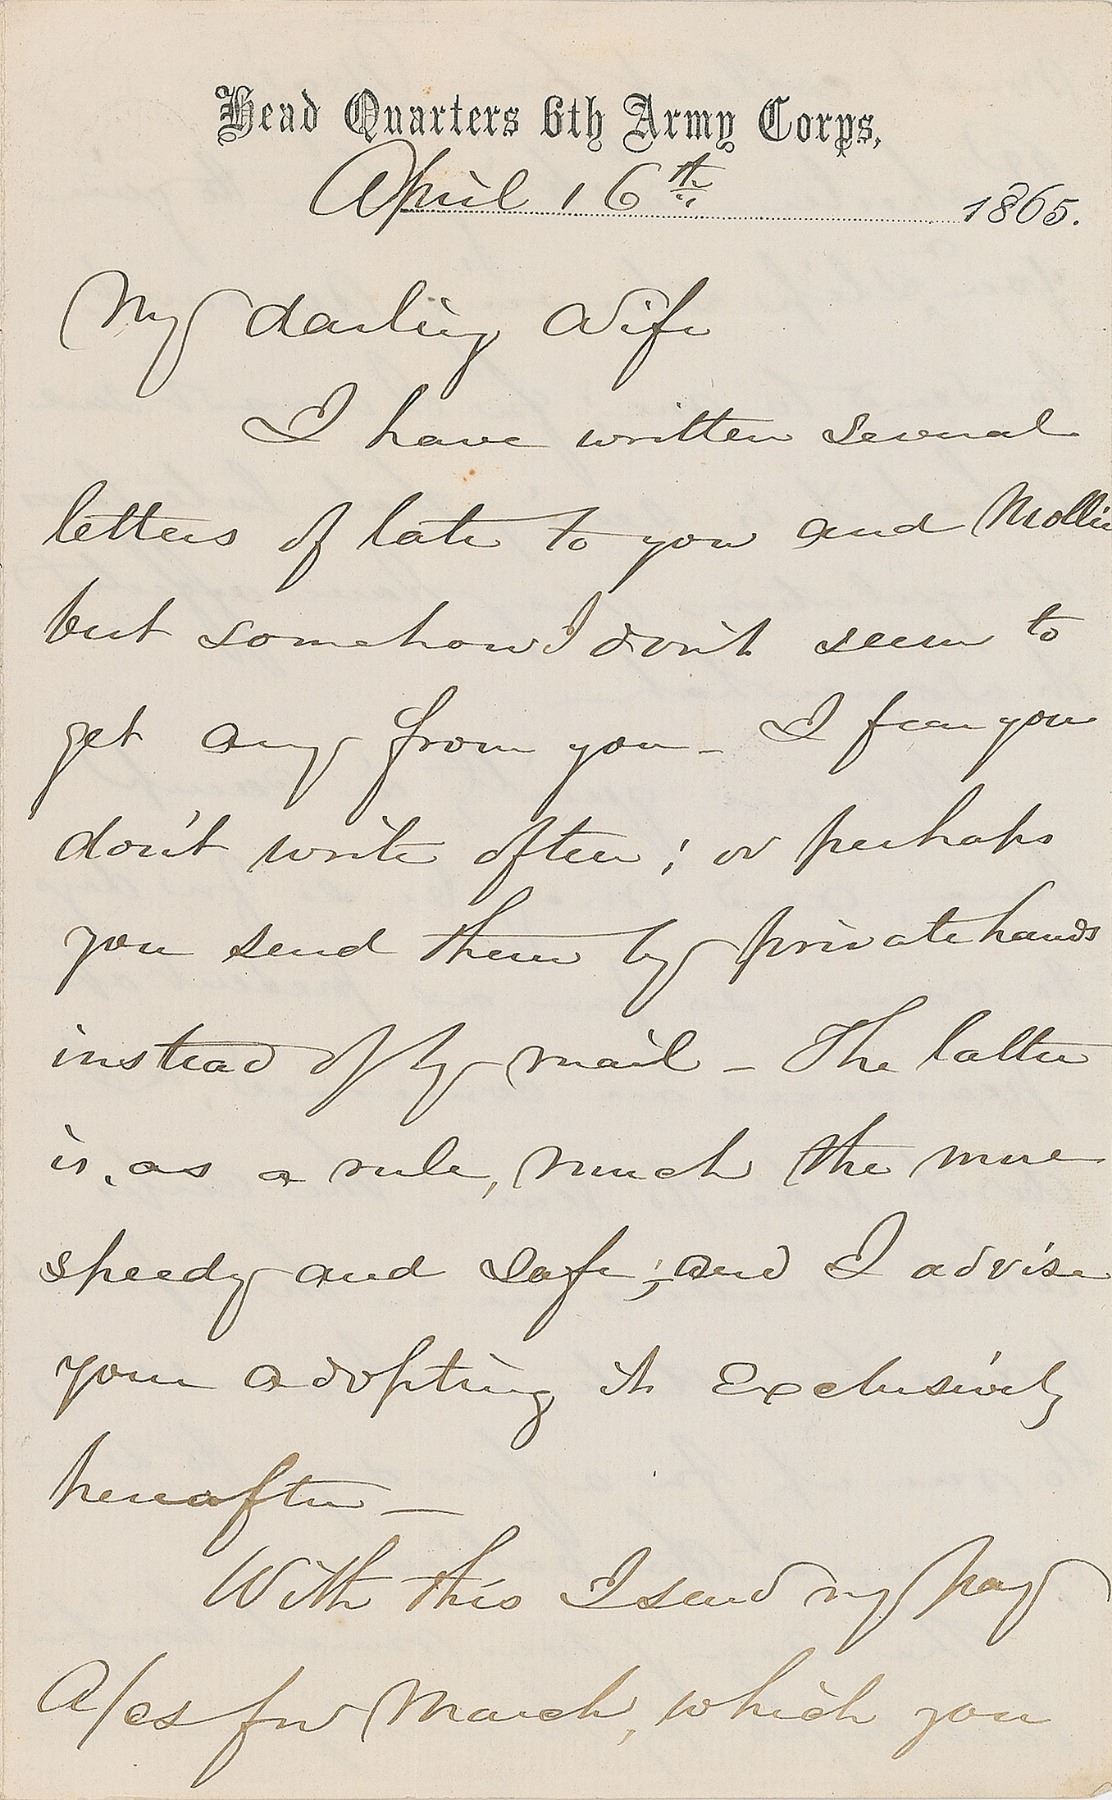 Head Quarters 6th Army Corps,
April 16th 1865.
My darling Wife
I have written several
letters of late to you and Mollie
but somehow I don't seem to
get any from you - I fear you
don't write often; or perhaps
you send them by private hands
instead of by mail - The latter
is, as a rule, much the more
speedy and safe; and I advise
your adopting it exclusively
hereafter -
With this I send my pay
A/cs for March, which you